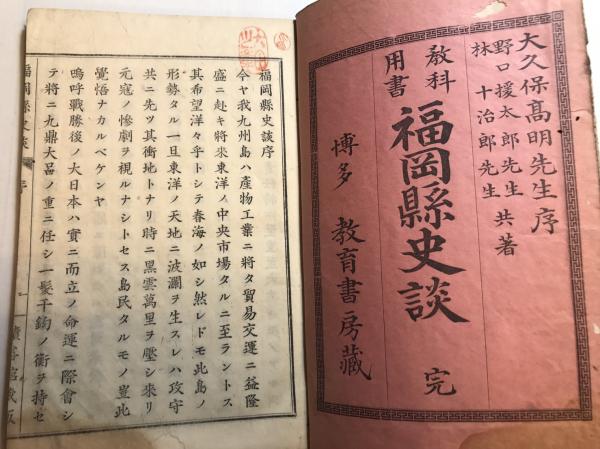 大久保髙明先生序
野口援太郎先生
林 十治郎先生
共著
教科
用書
福岡縣史談 完
博多 教育書房藏
福岡縣史談序
今ヤ我九州島ハ産物工業ニ將タ貿易交運ニ益隆
盛ニ赴キ將來東洋ノ中央市場タルニ至ラントス
其希望洋々乎トシテ春海ノ如シ然レドモ此島ノ
形勢タル一旦東洋ノ天地ニ波瀾ヲ生スレハ攻守
共ニ先ツ其衝地トナリ時ニ黒雲萬里ヲ壓シ來リ
元寇ノ慘劇ヲ視ルナシトセス島民タルモノ豈此
覺悟ナカルベケンヤ
嗚呼戰勝後ノ大日本ハ實ニ而立ノ命運ニ際會シ
テ將ニ九鼎大呂ノ重ニ任シ一髮千鈞ノ衡ヲ持セ
福岡縣史談 序 一